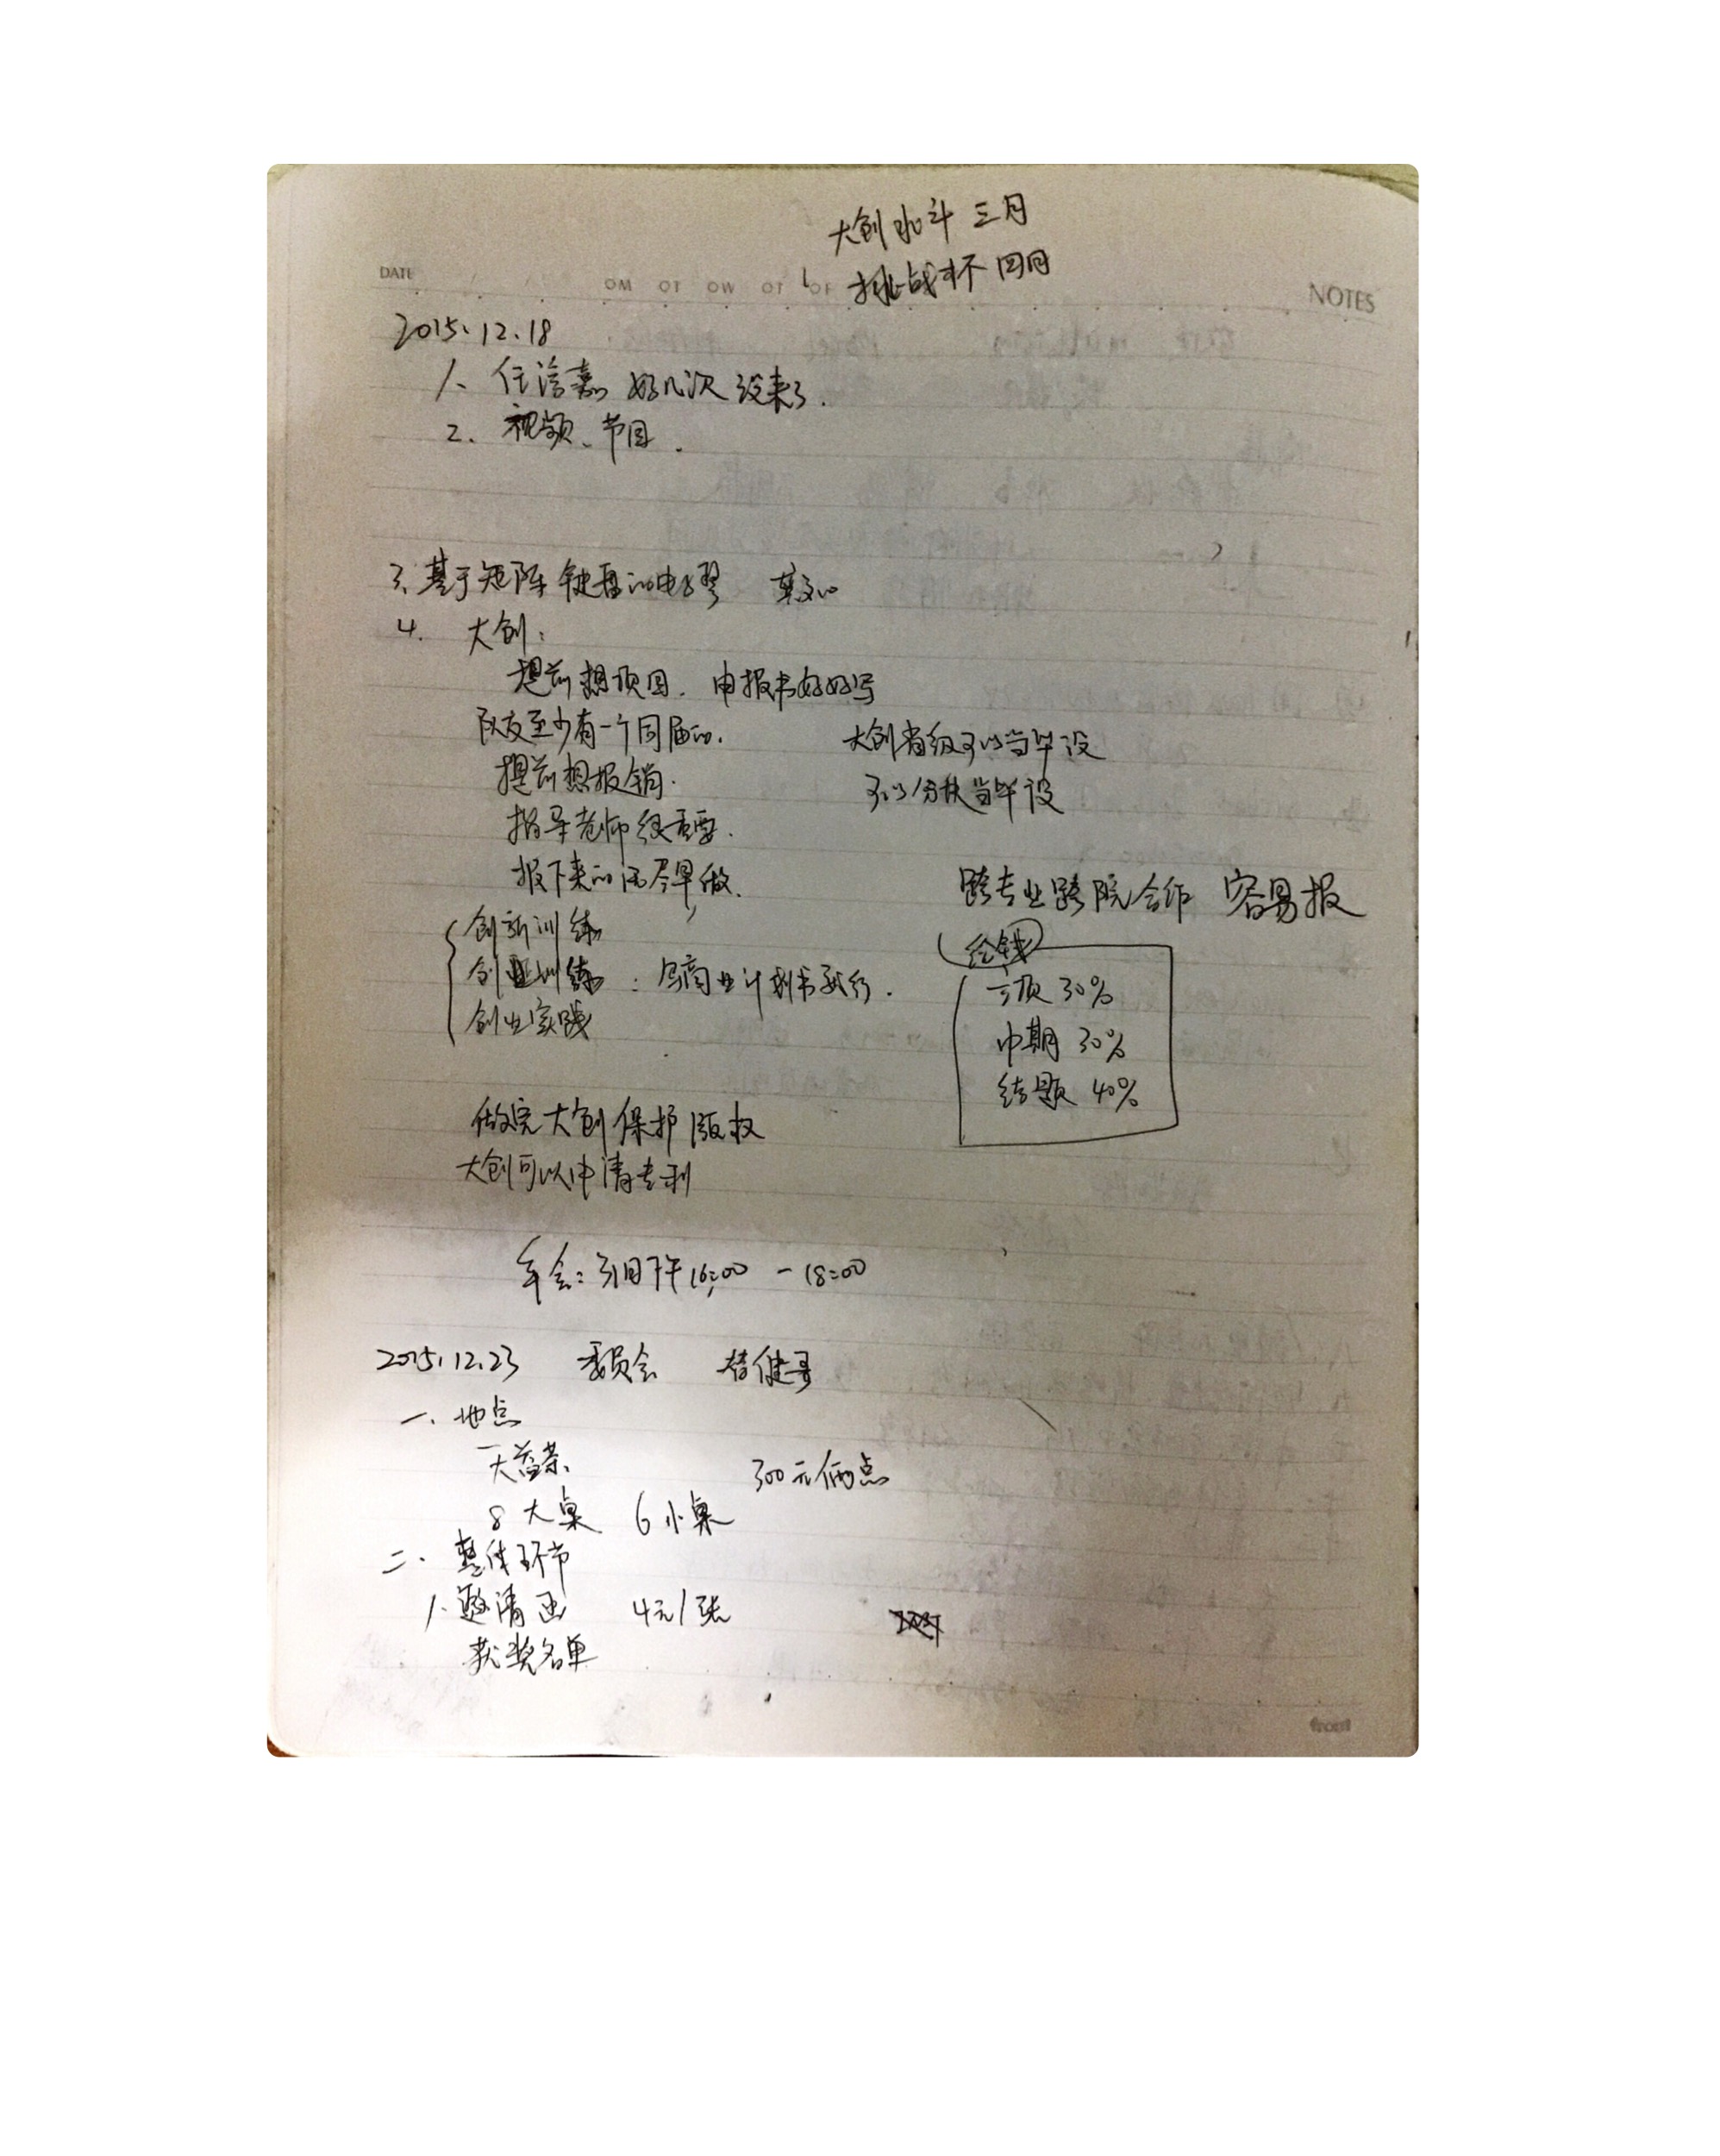 大创北斗 三月
挑战杯 四月
DATE
NOTES
2015.12.18
1、任洽嘉 好几次没来了.
2. 视频、节目.
3、基于矩阵键盘的电子琴
4. 大创:
提前想项目. 申报书好好写
队友至少有一个同届的.
大创省级可以当毕设
提前想报销.
可以分块当毕设
指导老师很重要.
报下来的话尽早做.
跨专业跨院合作 容易报
创新训练
创业训练 : 写商业计划书就行.
创业实践
给钱
立项 30%
中期 30%
结题 40%
做完大创保护版权
大创可以申请专利
年会: 31日下午16:00 - 18:00
2015.12.23 委员会 替健哥
一、地点
天益茶
300元俩点
8大桌 6小桌
二、整体环节
1、邀请函 4元/张
获奖名单
front